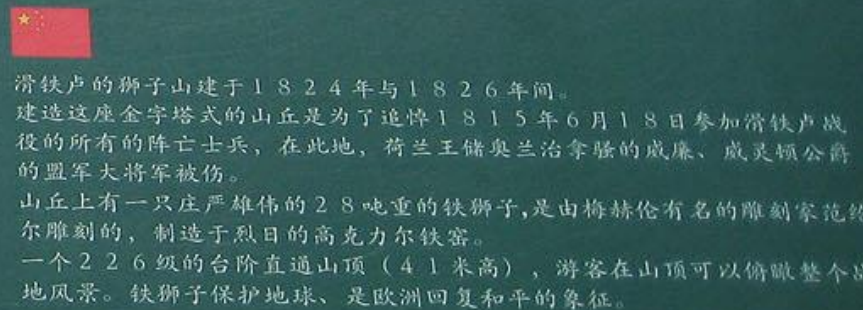 滑铁卢的狮子山建于1824年与1826年间。
建造这座金字塔式的山丘是为了追悼1815年6月18日参加滑铁卢战
役的所有的阵亡士兵，在此地，荷兰王储奥兰治拿骚的威廉、威灵顿公爵
的盟军大将军被伤。
山丘上有一只庄严雄伟的28吨重的铁狮子,是由梅赫伦有名的雕刻家范
尔雕刻的，制造于烈日的高克力尔铁窑。
一个226级的台阶直通山顶（41米高），游客在山顶可以俯瞰整个
地风景。铁狮子保护地球、是欧洲回复和平的象征。